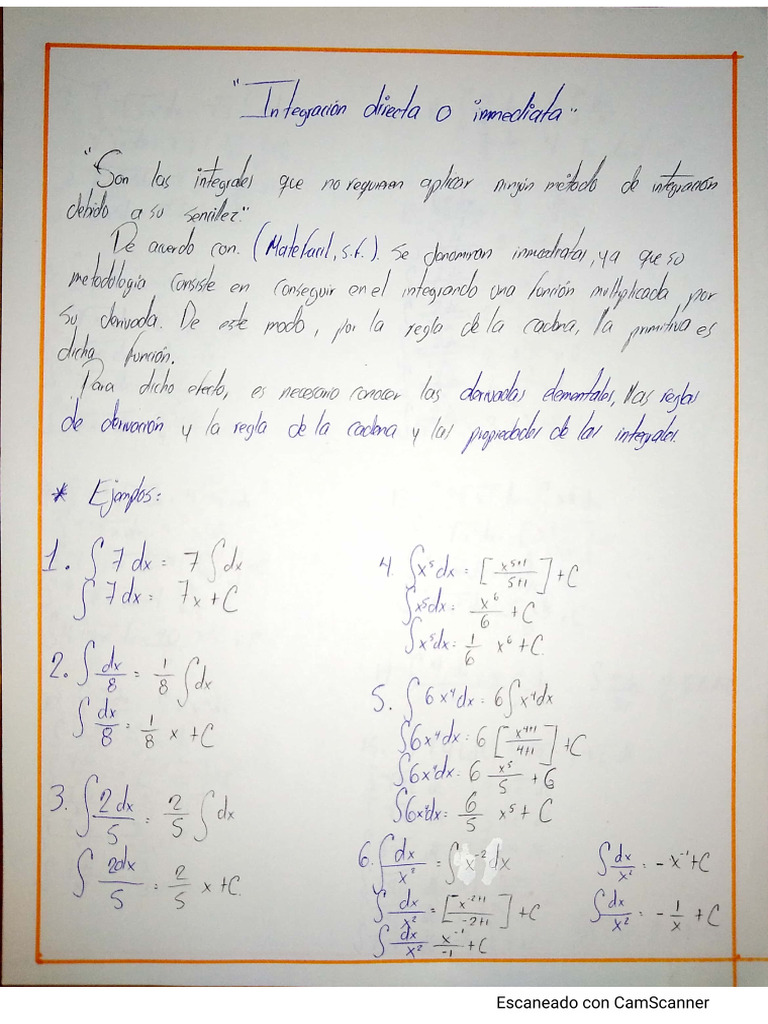 "Integración directa o inmediata"
"Son las integrales que no requieren aplicar ningún método de integración
debido a su sencillez."
De acuerdo con. (MateFacil, s.f.). Se denominan inmediatas, ya que su
metodología consiste en conseguir en el integrando una función multiplicada por
su derivada. De este modo, por la regla de la cadena, la primitiva es
dicha función.
Para dicho efecto, es necesario conocer las derivadas elementales, las reglas
de derivación y la regla de la cadena y las propiedades de las integrales.
* Ejemplos:
1. ∫ 7 dx = 7 ∫ dx
∫ 7 dx = 7x + C
2. ∫ dx/8 = 1/8 ∫ dx
∫ dx/8 = 1/8 x + C
3. ∫ 2dx/5 = 2/5 ∫ dx
∫ 2dx/5 = 2/5 x + C.
4. ∫ x⁵dx = [x⁵⁺¹/5+1] + C
∫ x⁵dx = x⁶/6 + C
∫ x⁵dx = 1/6 x⁶ + C.
5. ∫ 6x⁴dx = 6 ∫ x⁴dx
∫ 6x⁴dx = 6 [x⁴⁺¹/4+1] + C
∫ 6x⁴dx = 6 x⁵/5 + 6
∫ 6x⁴dx = 6/5 x⁵ + C
6. ∫ dx/x² = ∫ x⁻²dx
∫ dx/x² = [x⁻²⁺¹/-2+1] + C
∫ dx/x² x⁻¹/-1 + C
∫ dx/x² = -x⁻¹ + C
∫ dx/x² = - 1/x + C
Escaneado con CamScanner